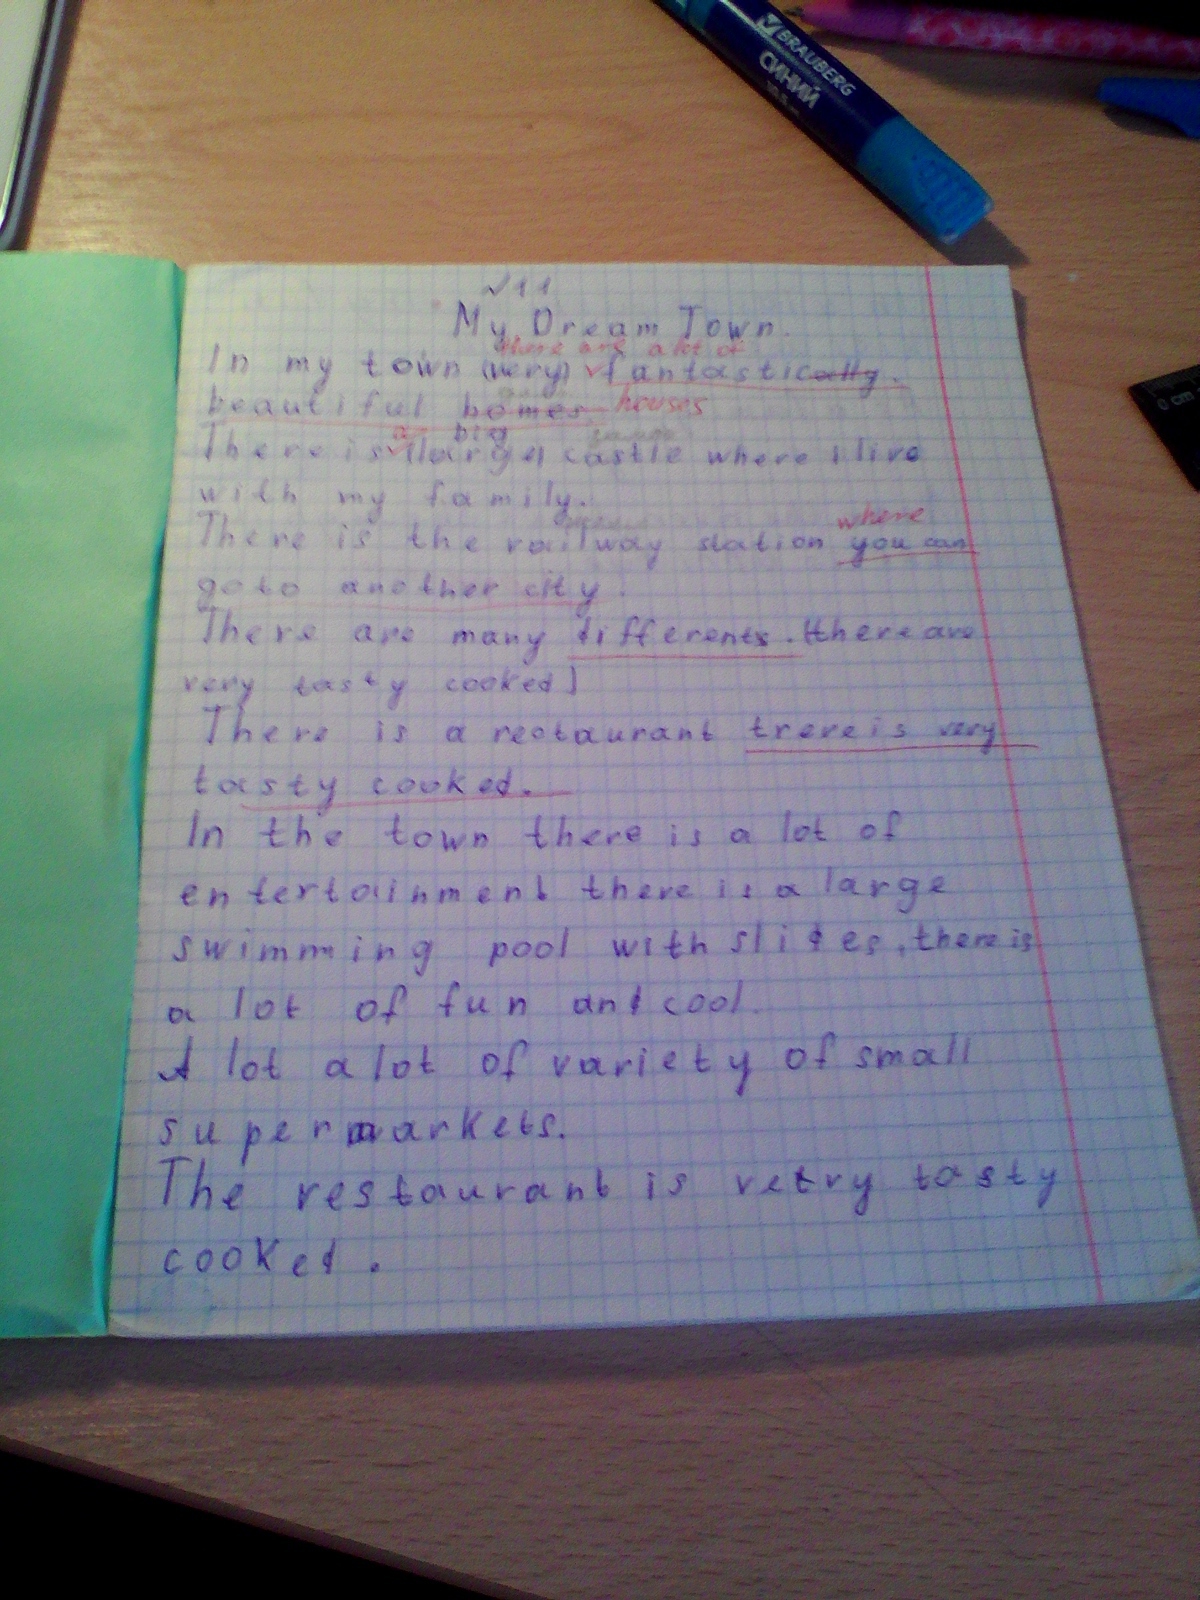 BRAUBERG
СИНИЙ
0 cm
№11
My Dream Town.
there are a lot of
In my town (very) ✓ fantastically.
beautiful homes. houses
a big
There is ✓ (large) castle where i live
with my family.
where
There is the railway station you can
go to another city.
There are many differents. [there are
very tasty cooked]
There is a restaurant trere is very
tasty cooked.
In the town there is a lot of
entertainment there is a large
swimming pool with slides, there is
a lot of fun and cool.
A lot a lot of variety of small
supermarkets.
The restaurant is vetry tasty
cooked.